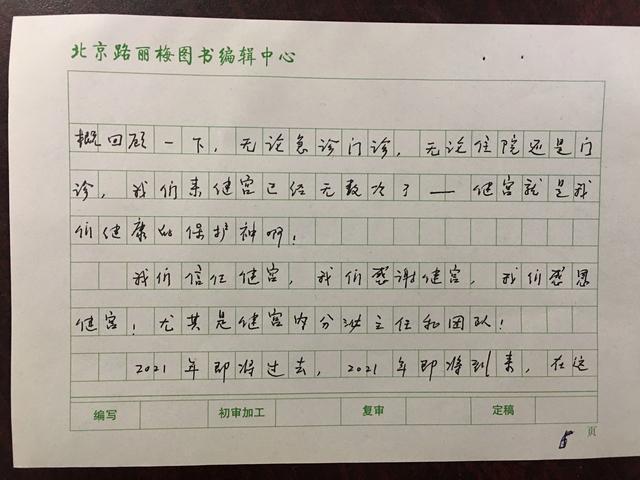 北京路丽梅图书编辑中心
概回顾一下，无论急诊门诊，无论住院还是门
诊，我们来健宫已经无数次了——健宫就是我
们健康的保护神啊！
我们信任健宫，我们感谢健宫，我们感恩
健宫！尤其是健宫内分泌主任和团队！
2021年即将过去，2021年即将到来，在这
编写 初审加工 复审 定稿
5 页